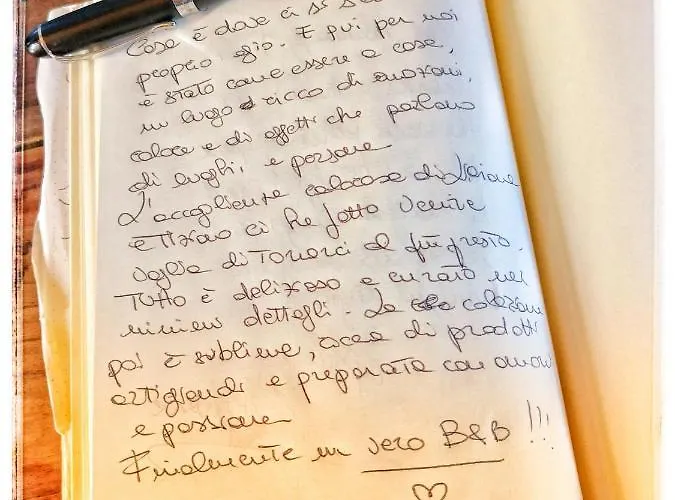 Casa è dove ci si s
proprio agio. E qui per noi
è stato come essere a casa,
un luogo ricco di emozioni,
calore e di oggetti che parlano
di luoghi, e persone
L'accogliente calorosa di
e Tiziano ci ha fatto venire
voglia di tornarci al più presto.
Tutto è delizioso e curato nei
minimi dettagli. La colazione
poi è sublime, ricca di prodotti
artigianali e preparata con amore
e passione
Finalmente un vero B&B !!!